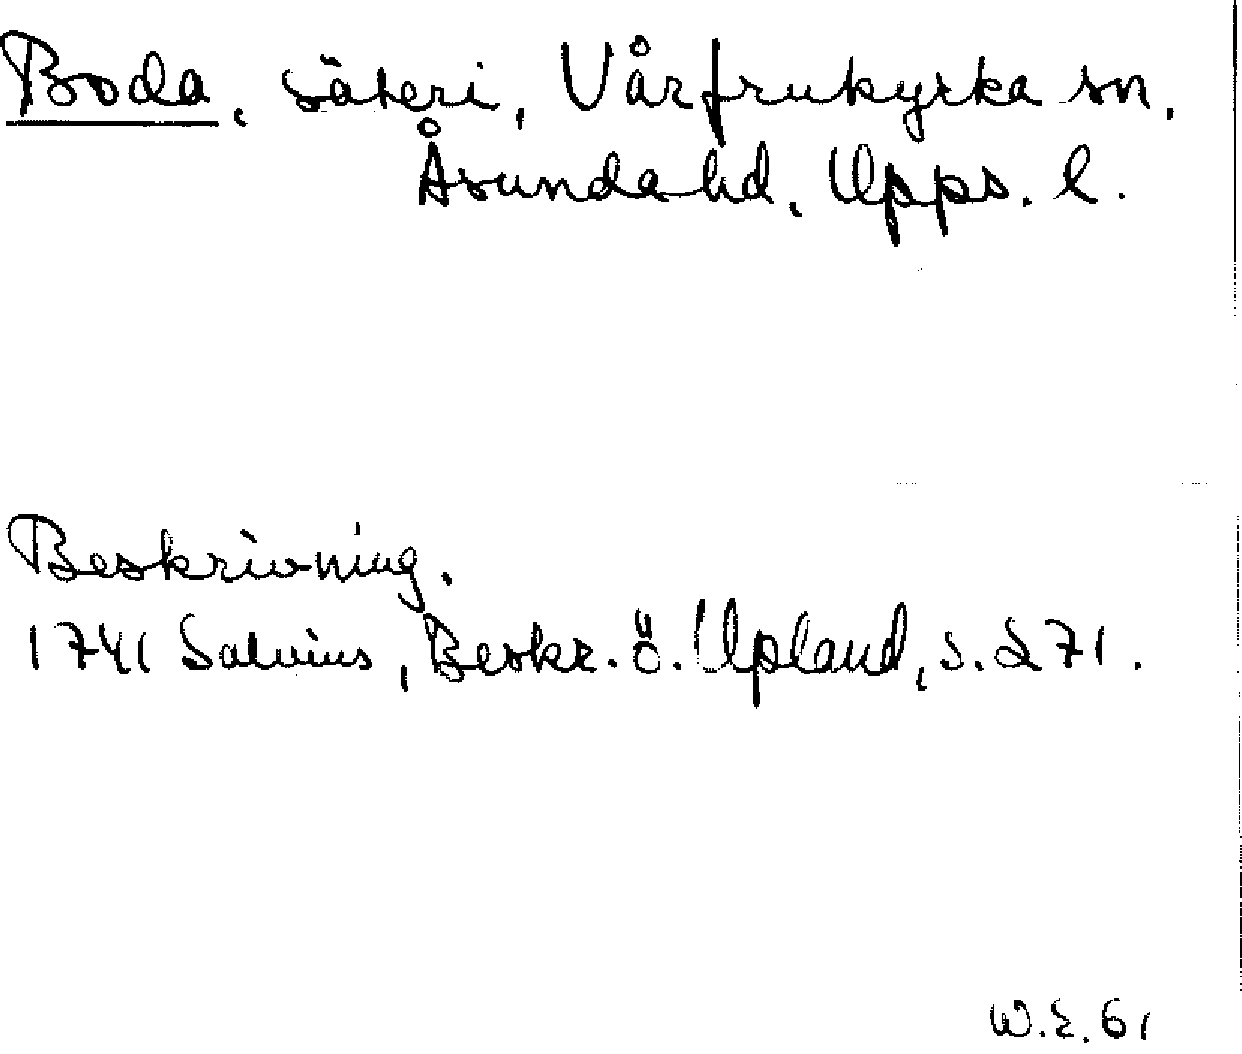 Boda, säteri, Vårfrukyrka sn,
Åsunda hd, Upps. l.
Beskrivning.
1741 Salvius, Beskr. ö. Upland, s. 271.
W.E. 61